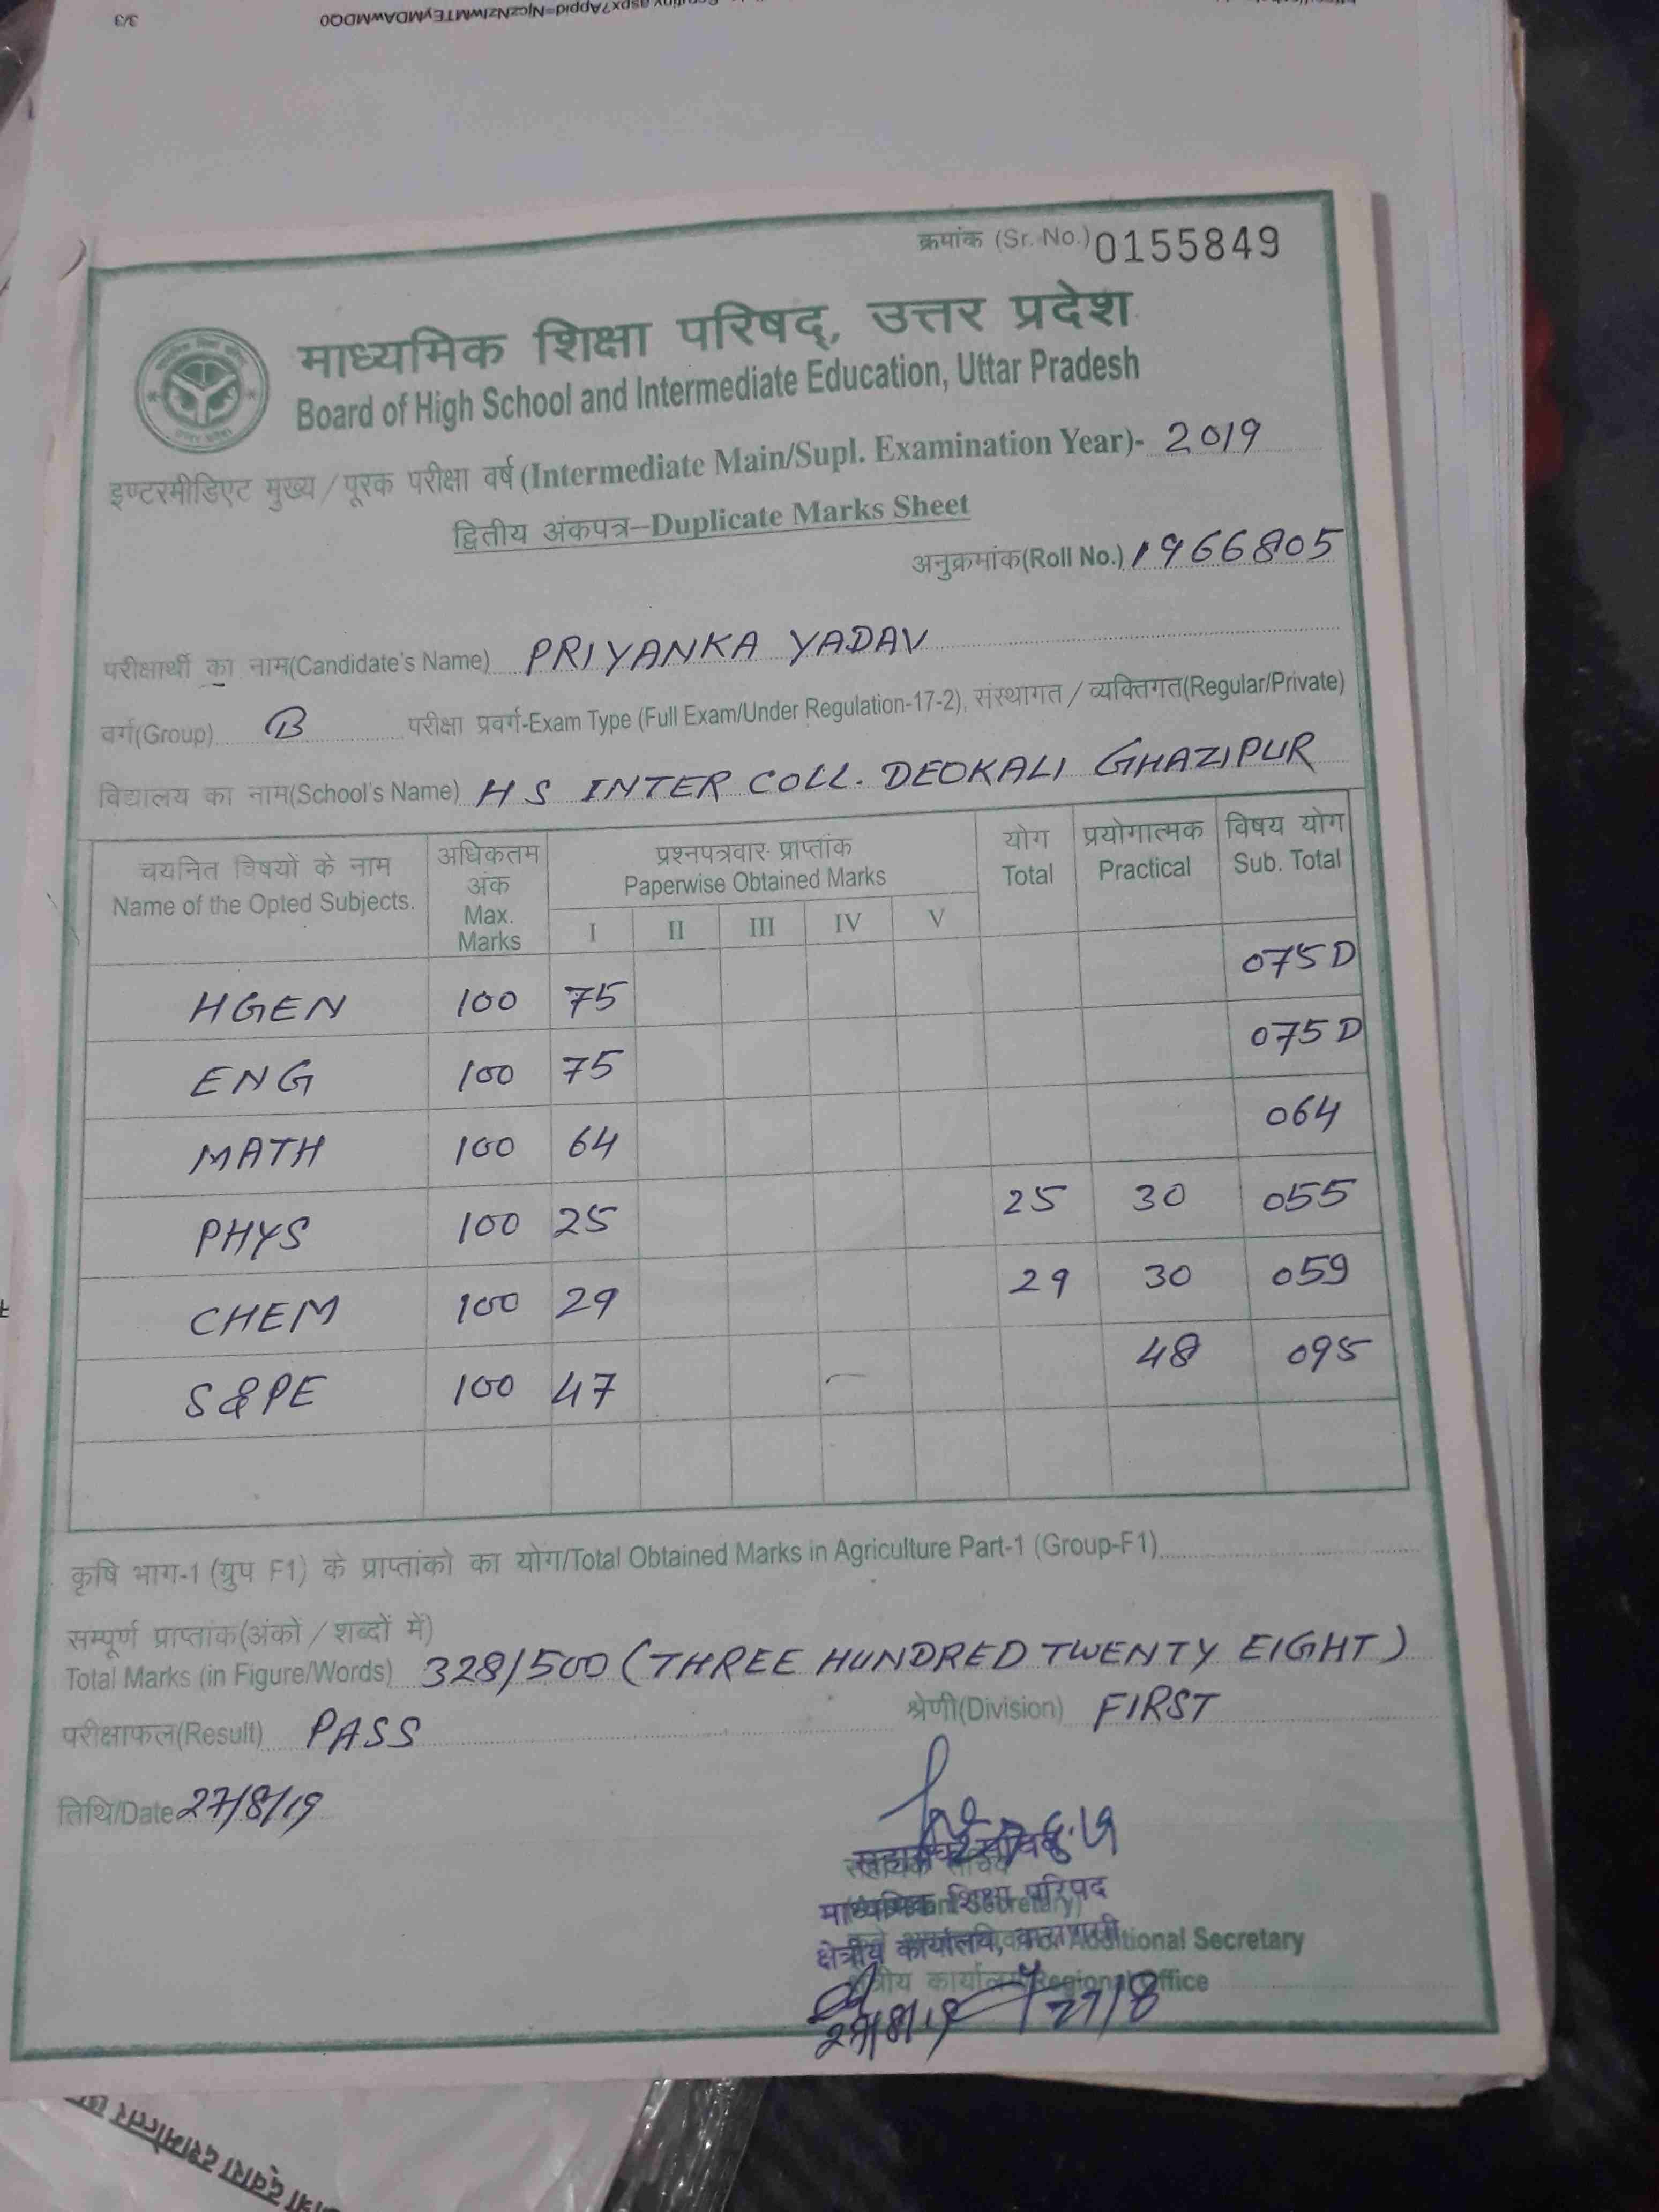 3/3
क्रमांक (Sr. No.) 0155849
माध्यमिक शिक्षा परिषद्, उत्तर प्रदेश
Board of High School and Intermediate Education, Uttar Pradesh
इण्टरमीडिएट मुख्य / पूरक परीक्षा वर्ष (Intermediate Main/Supl. Examination Year)- 2019
द्वितीय अंकपत्र–Duplicate Marks Sheet
अनुक्रमांक(Roll No.) 1966805
परीक्षार्थी का नाम(Candidate's Name) PRIYANKA YADAV
वर्ग(Group) B परीक्षा प्रवर्ग-Exam Type (Full Exam/Under Regulation-17-2), संस्थागत / व्यक्तिगत(Regular/Private)
विद्यालय का नाम(School's Name) H S INTER COLL. DEOKALI GHAZIPUR
चयनित विषयों के नाम Name of the Opted Subjects. अधिकतम अंक Max. Marks प्रश्नपत्रवार प्राप्तांक Paperwise Obtained Marks योग Total प्रयोगात्मक Practical विषय योग Sub. Total
I II III IV V
HGEN 100 75 075 D
ENG 100 75 075 D
MATH 100 64 064
PHYS 100 25 25 30 055
CHEM 100 29 29 30 059
S&PE 100 47 48 095
कृषि भाग-1 (ग्रुप F1) के प्राप्तांको का योग/Total Obtained Marks in Agriculture Part-1 (Group-F1)
सम्पूर्ण प्राप्तांक(अंकों / शब्दों में)
Total Marks (in Figure/Words) 328/500 (THREE HUNDRED TWENTY EIGHT)
परीक्षाफल(Result) PASS श्रेणी(Division) FIRST
तिथि/Date 27/8/19
माध्यमिक शिक्षा परिषद
क्षेत्रीय कार्यालय, Additional Secretary
क्षेत्रीय कार्यालय/Regional Office
27/8